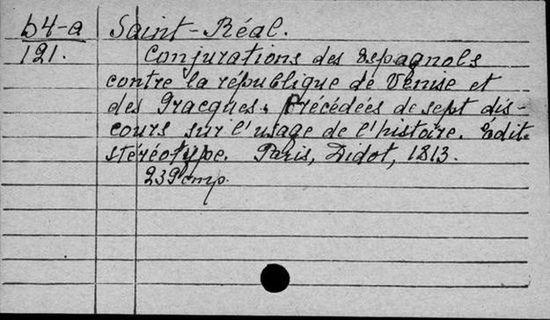 b4-a Saint-Réal.
121. Conjurations des Espagnols
contre la république de Venise et
des Gracques. Précédées de sept dis-
cours sur l'usage de l'histoire. Edit.
stéréotype. Paris, Didot, 1813.
239 p.